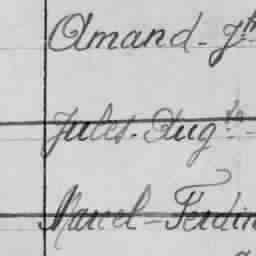 Amand - Jh
Jules - Augte -
Marcel - Ferdin